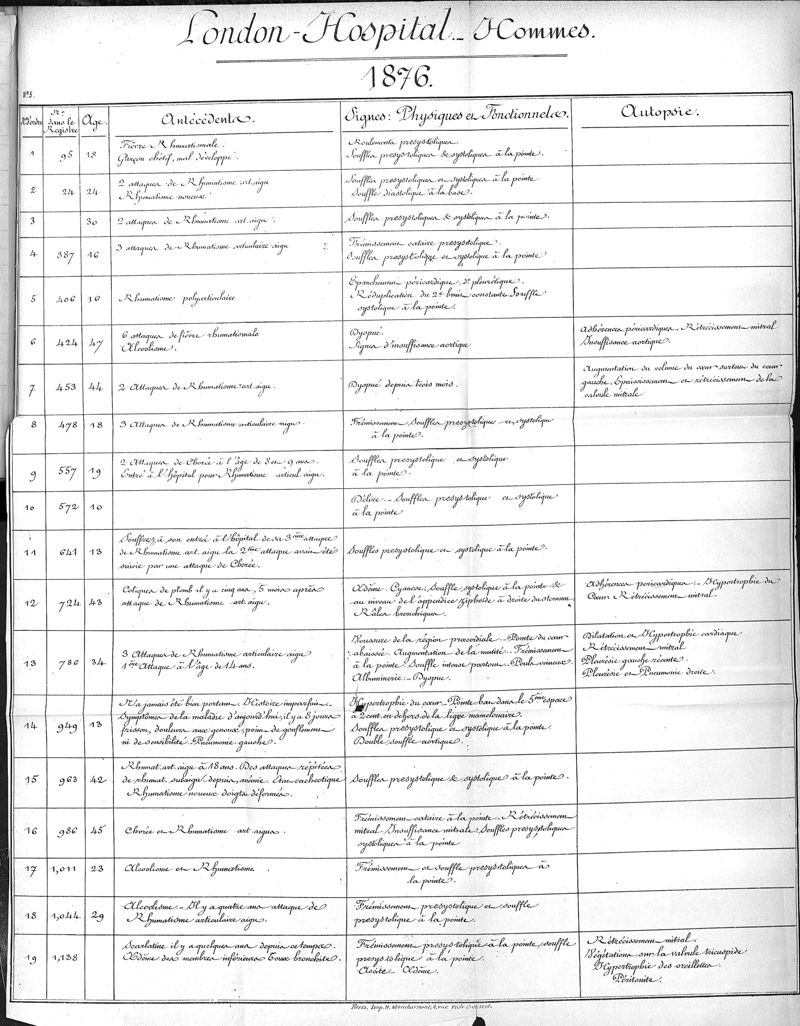 London-Hospital_Hommes.
1876.
N° 5.
Nos d'Ordre
Nos dans le Registre
Age.
Antécédents.
Signes: Physiques et Fonctionnels.
Autopsie.
1 95 18
Fièvre Rhumatismale.
Garçon chétif, mal développé.
Roulements presystoliques.
Souffles presystoliques & systoliques à la pointe.
2 24 24
2 attaques de Rhumatisme art. aigu
Rhumatisme noueux.
Souffles presystoliques et systoliques à la pointe
Souffle diastolique à la base.
3 30
2 attaques de Rhumatisme art. aigu.
Souffles presystoliques & systoliques à la pointe.
4 387 16
3 attaques de Rhumatisme articulaire aigu
Frémissement cataire presystolique.
Souffles presystolique et systolique à la pointe
5 406 16
Rhumatisme polyarticulaire
Epanchement péricardique, d° pleurétique.
Réduplication du 2d bruit constante. Souffle
systolique à la pointe.
6 424 47
6 attaques de fièvre rhumatismale
Alcoolisme.
Dyspnée.
Signes d'insuffisance aortique
Adhérences péricardiques. Rétrécissement mitral
Insuffisance aortique.
7 453 44
2 Attaques de Rhumatisme art. aigu.
Dyspnée depuis trois mois.
Augmentation du volume du cœur surtout du cœur
gauche. Epaississement et rétrécissement de la
valvule mitrale
8 478 18
3 Attaques de Rhumatisme articulaire aigu.
Frémissement, Souffles presystolique et systolique
à la pointe.
9 557 19
2 Attaques de Chorée à l'âge de 8 et 9 ans.
Entré à l'hôpital pour Rhumatisme articul. aigu.
Souffles presystolique et systolique
à la pointe.
10 572 10
Délire. Souffles presystolique et systolique
à la pointe
11 641 13
Souffrez, à son entré à l'hôpital de sa 3ème attaque
de Rhumatisme art. aigu la 2ème attaque avait été
suivie par une attaque de Chorée.
Souffles presystolique et systolique à la pointe.
12 724 43
Coliques de plomb il y a cinq ans, 5 mois après
attaque de Rhumatisme art. aigu.
Œdème. Cyanose, Souffle systolique à la pointe &
au niveau de l'appendice xiphoïde à droite du sternum
Râles bronchiques.
Adhérences pericardiques. Hypertrophie du
Cœur Rétrécissement mitral.
13 786 34
3 Attaques de Rhumatisme articulaire aigu
1ère Attaque à l'âge de 14 ans.
Voussure de la région precordiale. Pointe du cœur
abaissée. Augmentation de la matité. Frémissement
à la pointe. Souffle intense partout. Pouls veineux.
Albuminerie. Dyspnée.
Dilatation et Hypertrophie cardiaque
Rétrécissement mitral
Pleurésie gauche récente.
Pleurésie et Pneumonie droite.
14 949 13
N'a jamais été bien portant. Histoire imparfaite.
Symptômes de la maladie d'aujourd'hui; il y a 8 jours
frisson, douleurs aux genoux; point de gonflement
ni de sensibilité. Pneumonie gauche.
Hypertrophie du cœur. Pointe bat dans le 5ème espace
à 2 cent. en dehors de la ligne mamelonaire.
Souffles presystolique et systolique à la pointe.
Double souffle aortique.
15 963 42
Rhumat. art. aigu à 18 ans. Des attaques répétées
de rhumat. subaigu depuis, anémie. État cachectique
Rhumatisme noueux doigts déformés.
Souffles presystolique & systolique à la pointe.
16 986 45
Chorée et Rhumatisme art. aigu.
Frémissement cataire à la pointe. Rétrécissement
mitral. Insuffisance mitrale. Souffles presystoliques
systoliques à la pointe
17 1,011 23
Alcoolisme et Rhumatisme.
Frémissement et souffle presystoliques à
la pointe.
18 1,044 29
Alcoolisme. Il y a quatre ans attaque de
Rhumatisme articulaire aigu.
Frémissement presystolique et souffle
presystolique à la pointe.
19 1,138
Scarlatine il y a quelques ans depuis ce temps.
Œdème des membres inférieurs Toux bronchite.
Frémissement presystolique à la pointe, souffle
presystolique à la pointe.
Ascite. Œdème.
Rétrécissement mitral.
Végétations sur la valvule tricuspide
Hypertrophie des oreillettes.
Péritonite.
Paris, Imp.